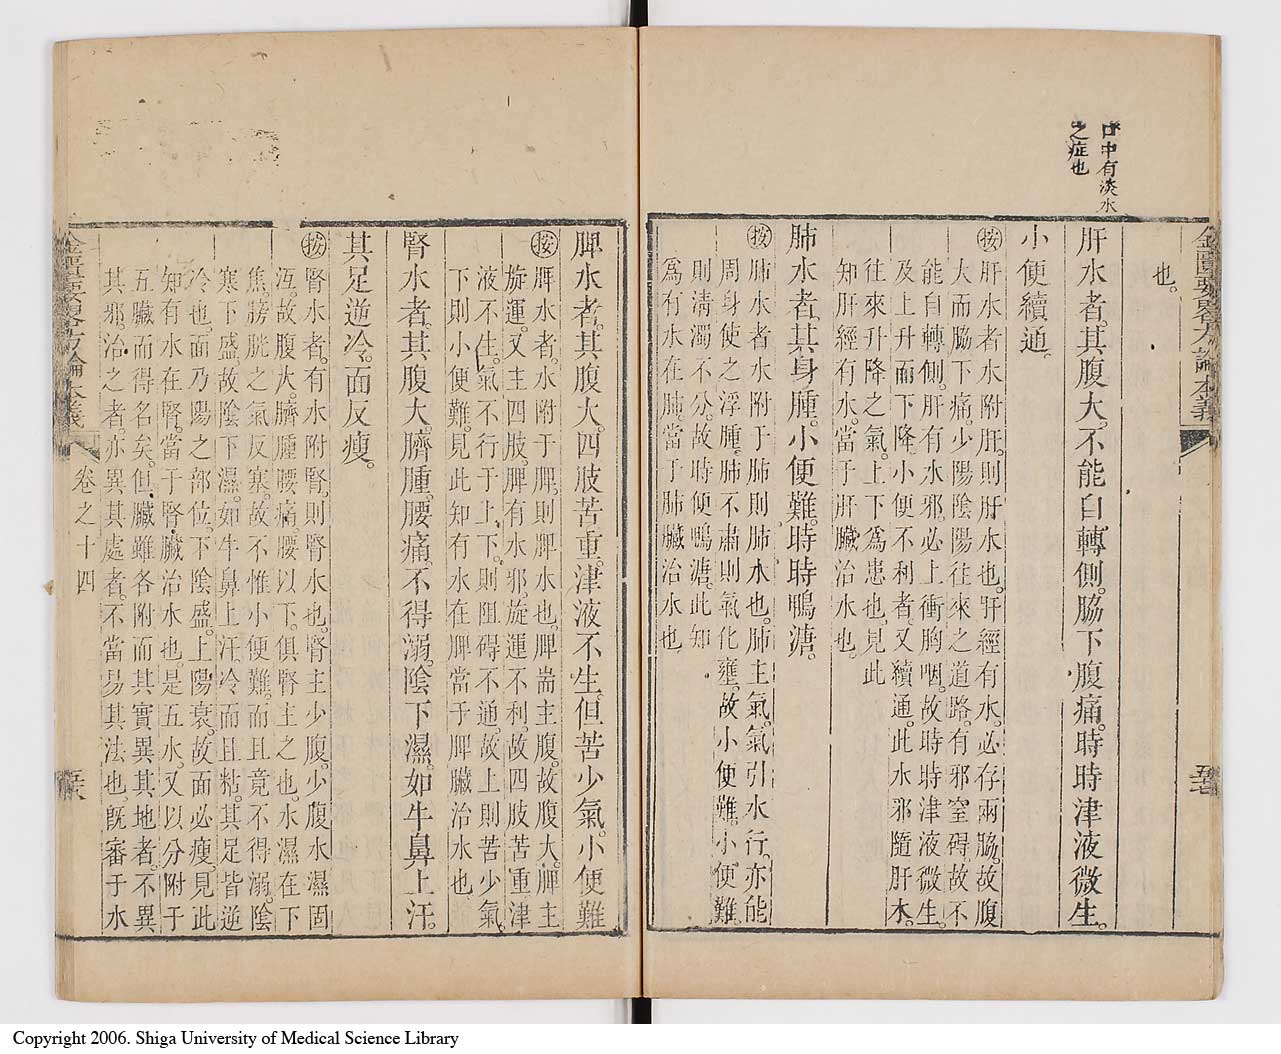 口中有淡水
之症也
金匱要畧方論本義
也。
肝水者。其腹大。不能自轉側。脇下腹痛。時時津液微生。
小便續通。
按肝水者水附肝。則肝水也。肝經有水。必存兩脇。故腹
大而脇下痛。少陽陰陽往來之道路。有邪窒碍。故不
能自轉側。肝有水邪。必上衝胸咽。故時時津液微生。
及上升而下降。小便不利者。又續通。此水邪隨肝木。
往來升降之氣。上下爲患也。見此
知肝經有水。當于肝臟治水也。
肺水者。其身腫。小便難。時時鴨溏。
按肺水者水附于肺則肺水也。肺主氣。氣引水行。亦能
周身使之浮腫。肺不肅則氣化壅。故小便難。小便難。
則清濁不分。故時便鴨溏。此知
爲有水在肺。當于肺臟治水也。
脾水者。其腹大。四肢苦重。津液不生。但苦少氣。小便難
按脾水者。水附于脾。則脾水也。脾耑主腹。故腹大。脾主
旋運。又主四肢。脾有水邪。旋運不利。故四肢苦重津
液不生。氣不行于上下。則阻碍不通。故上則苦少氣。
下則小便難。見此知有水在脾當于脾臟治水也
腎水者。其腹大。臍腫。腰痛。不得溺。陰下濕。如牛鼻上汗。
其足逆冷。面反瘦。
按腎水者。有水附腎。則腎水也。腎主少腹。少腹水濕固
沍。故腹大。臍腫腰痛。腰以下。俱腎主之也。水濕在下
焦。膀胱之氣反塞。故不惟小便難。而且竟不得溺。陰
寒下盛。故陰下濕。如牛鼻上汗。冷而且粘。其足皆逆
冷也。面乃陽之部位。下陰盛。上陽衰。故面必瘦。見此
知有水在腎。當于腎臟治水也。是五水。又以分附于
五臟而得名矣。但臟雖各附而其實異其地者。不異
其邪。治之者。亦異其處者。不當易其法也。旣審于水
金匱要畧方論本義
卷之十四